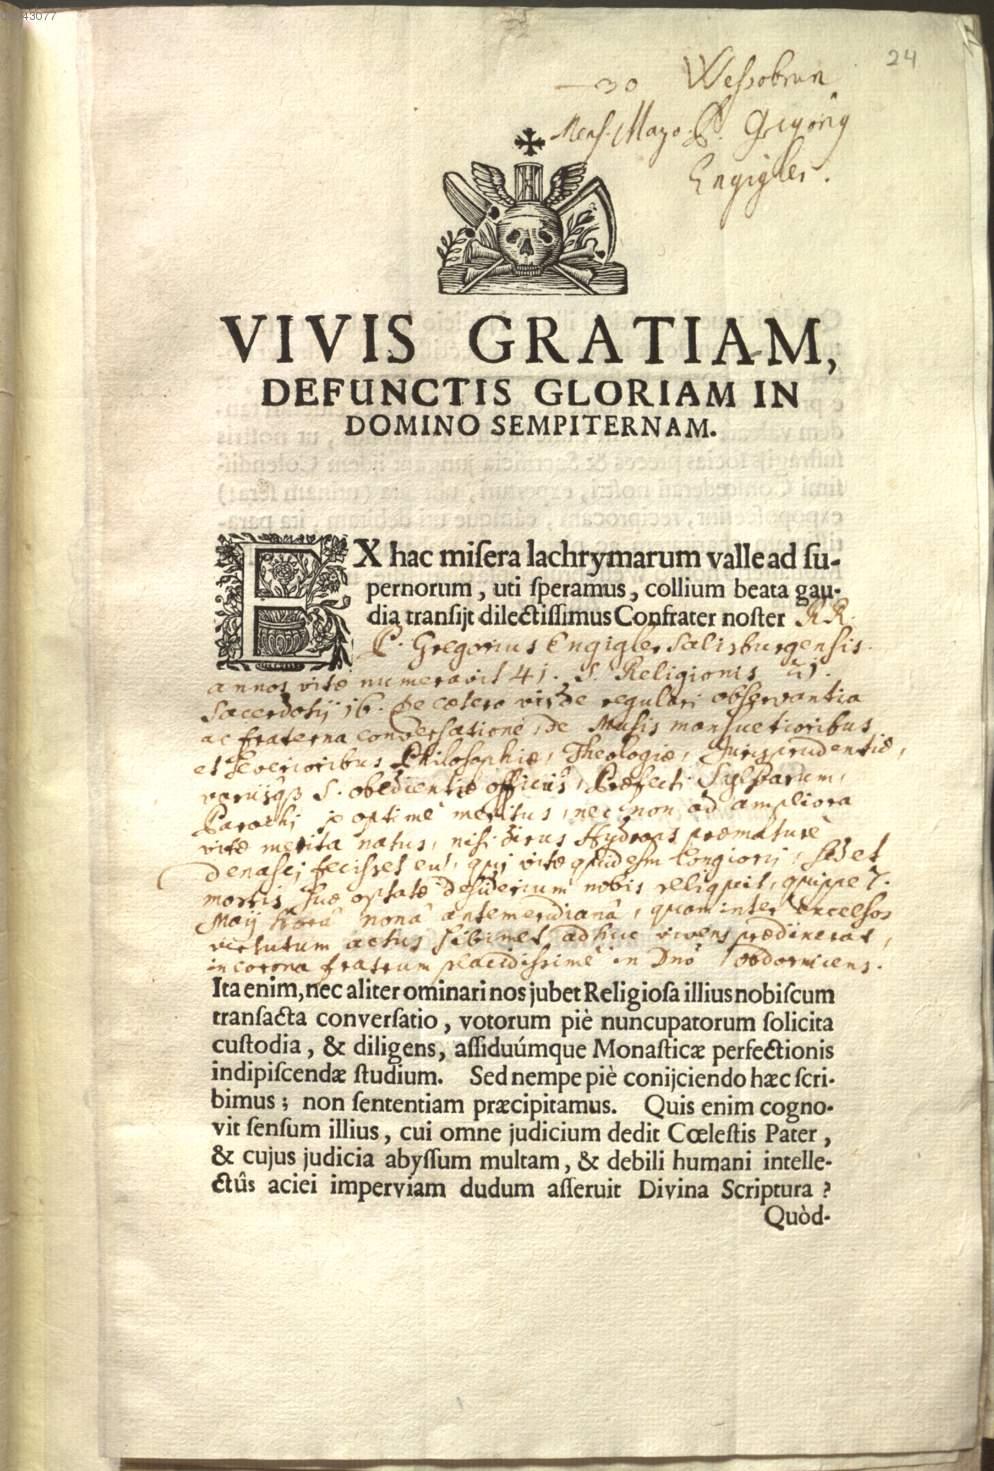 43077
24
30 Wessobrun
Mens. Mayo. P. Gregorig
Engigler.
VIVIS GRATIAM,
DEFUNCTIS GLORIAM IN
DOMINO SEMPITERNAM.
EX hac miſera lachrymarum valle ad ſu-
pernorum, uti ſperamus, collium beata gau-
dia tranſijt dilectiſſimus Confrater noſter RR.
P. Gregorius Engigler Saliſburgenſis.
annos vitæ numeravit 41. S. Religionis 21.
Sacerdotij 16. De cætero vir de regulari obſervantia
ac fraterna converſatione, de Muſis manſuetioribus
et ſeverioribus Philoſophiæ, Theologiæ, Jurisprudentiæ,
varijsq3 S. obedientiæ officijs, Præfecti
Parochi optimè meritus, nec non ad ampliora
vitæ merita natus, niſi dirus Hydrops præmaturè
denaſci feciſſet eu, qui vitæ longioris, ſed et
mortis ſuæ optatæ deſiderium nobis reliquit, quippe 7.
Maij hora nona antemeridiana, quam inter excelſos
virtutum actus ſibimet adhuc vivens prædixerat,
in corona fratrum placidiſſimè in Dno obdormiens.
Ita enim, nec aliter ominari nos jubet Religioſa illius nobiſcum
tranſacta converſatio, votorum piè nuncupatorum ſolicita
cuſtodia, & diligens, aſſiduúmque Monaſticæ perfectionis
indipiſcendæ ſtudium. Sed nempe piè conijciendo hæc ſcri-
bimus; non ſententiam præcipitamus. Quis enim cogno-
vit ſenſum illius, cui omne judicium dedit Cœleſtis Pater,
& cujus judicia abyſſum multam, & debili humani intelle-
ctûs aciei imperviam dudum aſſeruit Divina Scriptura?
Quòd-